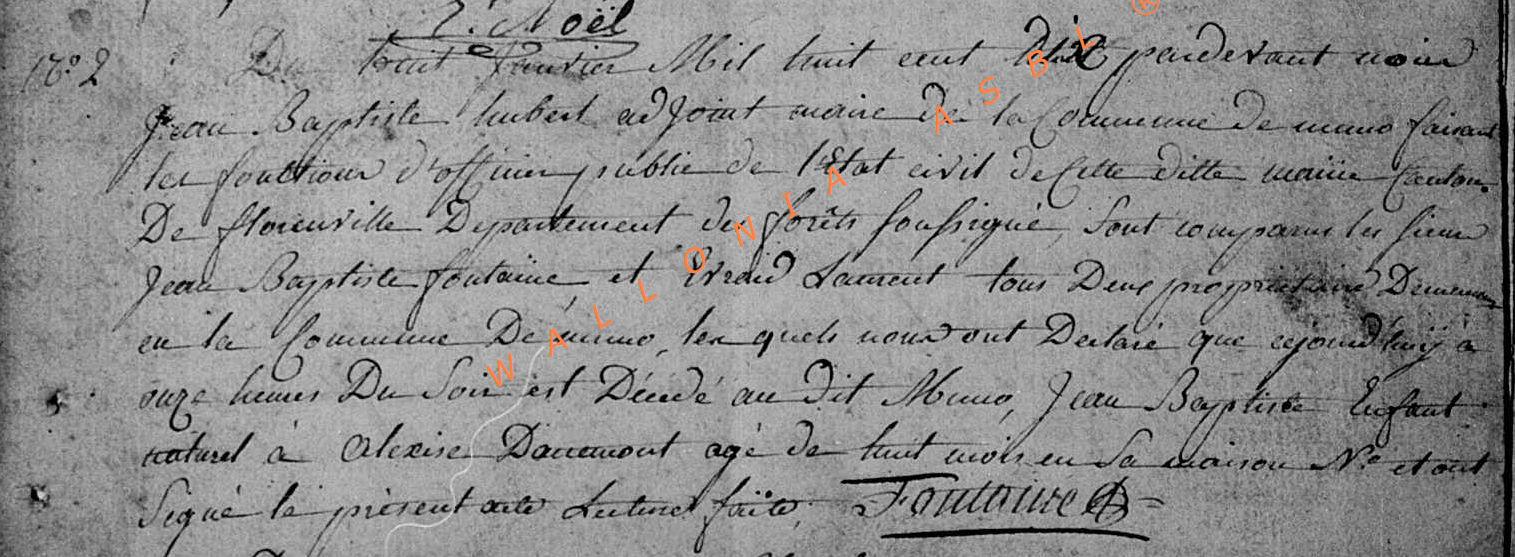 J. Noël
N.º 2 Du huit Janvier Mil huit cent dix pardevant nous
Jean Baptiste hubert adjoint maire de la Commune de muno faisant
les fonctions d'officier public de l'Etat civil de Cette ditte mairie Canton
De florenville Departement des forêts soussigné, Sont comparus les sieurs
Jean Baptiste fontaine et Evrard Laurent tous Deux propriétaires Demeurans
en la Commune De muno, les quels nous ont Declaré que cejourd'huÿ à
onze heures Du Soir est Décédé au dit Muno, Jean Baptiste Enfant
naturel à alexise agé de huit mois en Sa maison N.º et ont
Signé le présent acte Lecture faite, Fontaine
WALLONIA ASBL ®